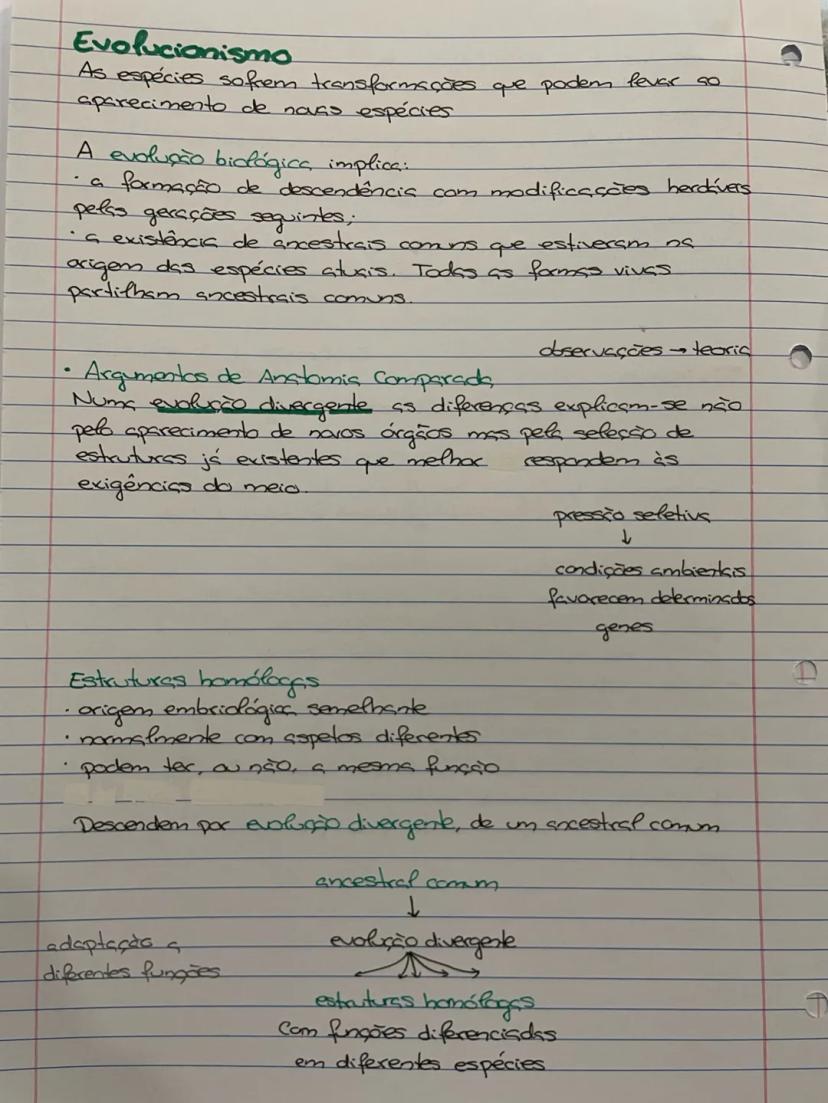 Evolucionismo
As espécies sofrem transformações que podem levar ao
aparecimento de novas espécies
A evolução biológica implica:
· a formação de descendência com modificações herdáveis
pelas gerações seguintes;
· a existência de ancestrais comuns que estiveram na
origem das espécies atuais. Todas as formas vivas
partilham ancestrais comuns.
observações → teoria
• Argumentos de Anatomia Comparada
Numa evolução divergente as diferenças explicam-se não
pelo aparecimento de novos órgãos mas pela seleção de
estruturas já existentes que melhor respondem às
exigências do meio.
pressão seletiva
↓
condições ambientais
favorecem determinados
genes
Estruturas homólogas
· origem embriológica semelhante
· normalmente com aspetos diferentes
· podem ter, ou não, a mesma função
Descendem por evolução divergente, de um ancestral comum
ancestral comum
↓
adaptação a
diferentes funções
evolução divergente
estruturas homólogas
Com funções diferenciadas
em diferentes espécies